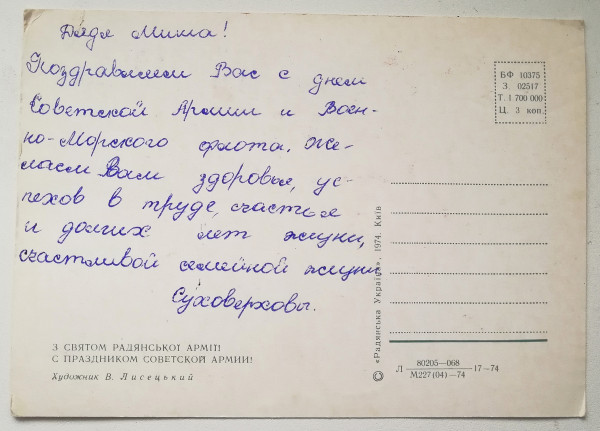 Дядя Миша!
Поздравляем Вас с днем
Советской Армии и Воен-
но-Морского флота. Же-
лаем Вам здоровья, ус-
пехов в труде, счастья
и долгих лет жизни,
счастливой семейной жизни
Суховерховы.
З СВЯТОМ РАДЯНСЬКОЇ АРМІЇ!
С ПРАЗДНИКОМ СОВЕТСКОЙ АРМИИ!
Художник В. Лисецький
БФ 10375
З. 02517
Т. 1 700 000
Ц. 3 коп.
© «Радянська Україна», 1974. Київ
Л 80205—068 17—74
М227(04)—74